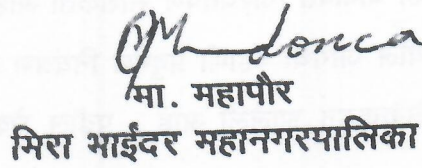 मा. महापौर
मिरा भाईंदर महानगरपालिका